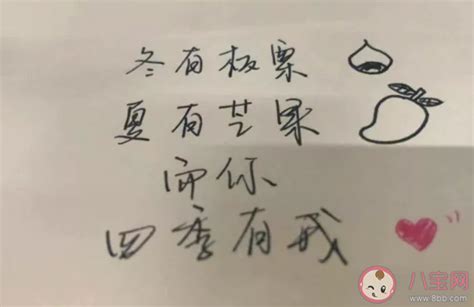 冬有板栗
夏有芒果
而你
四季有我
八宝网
www.8bb.com